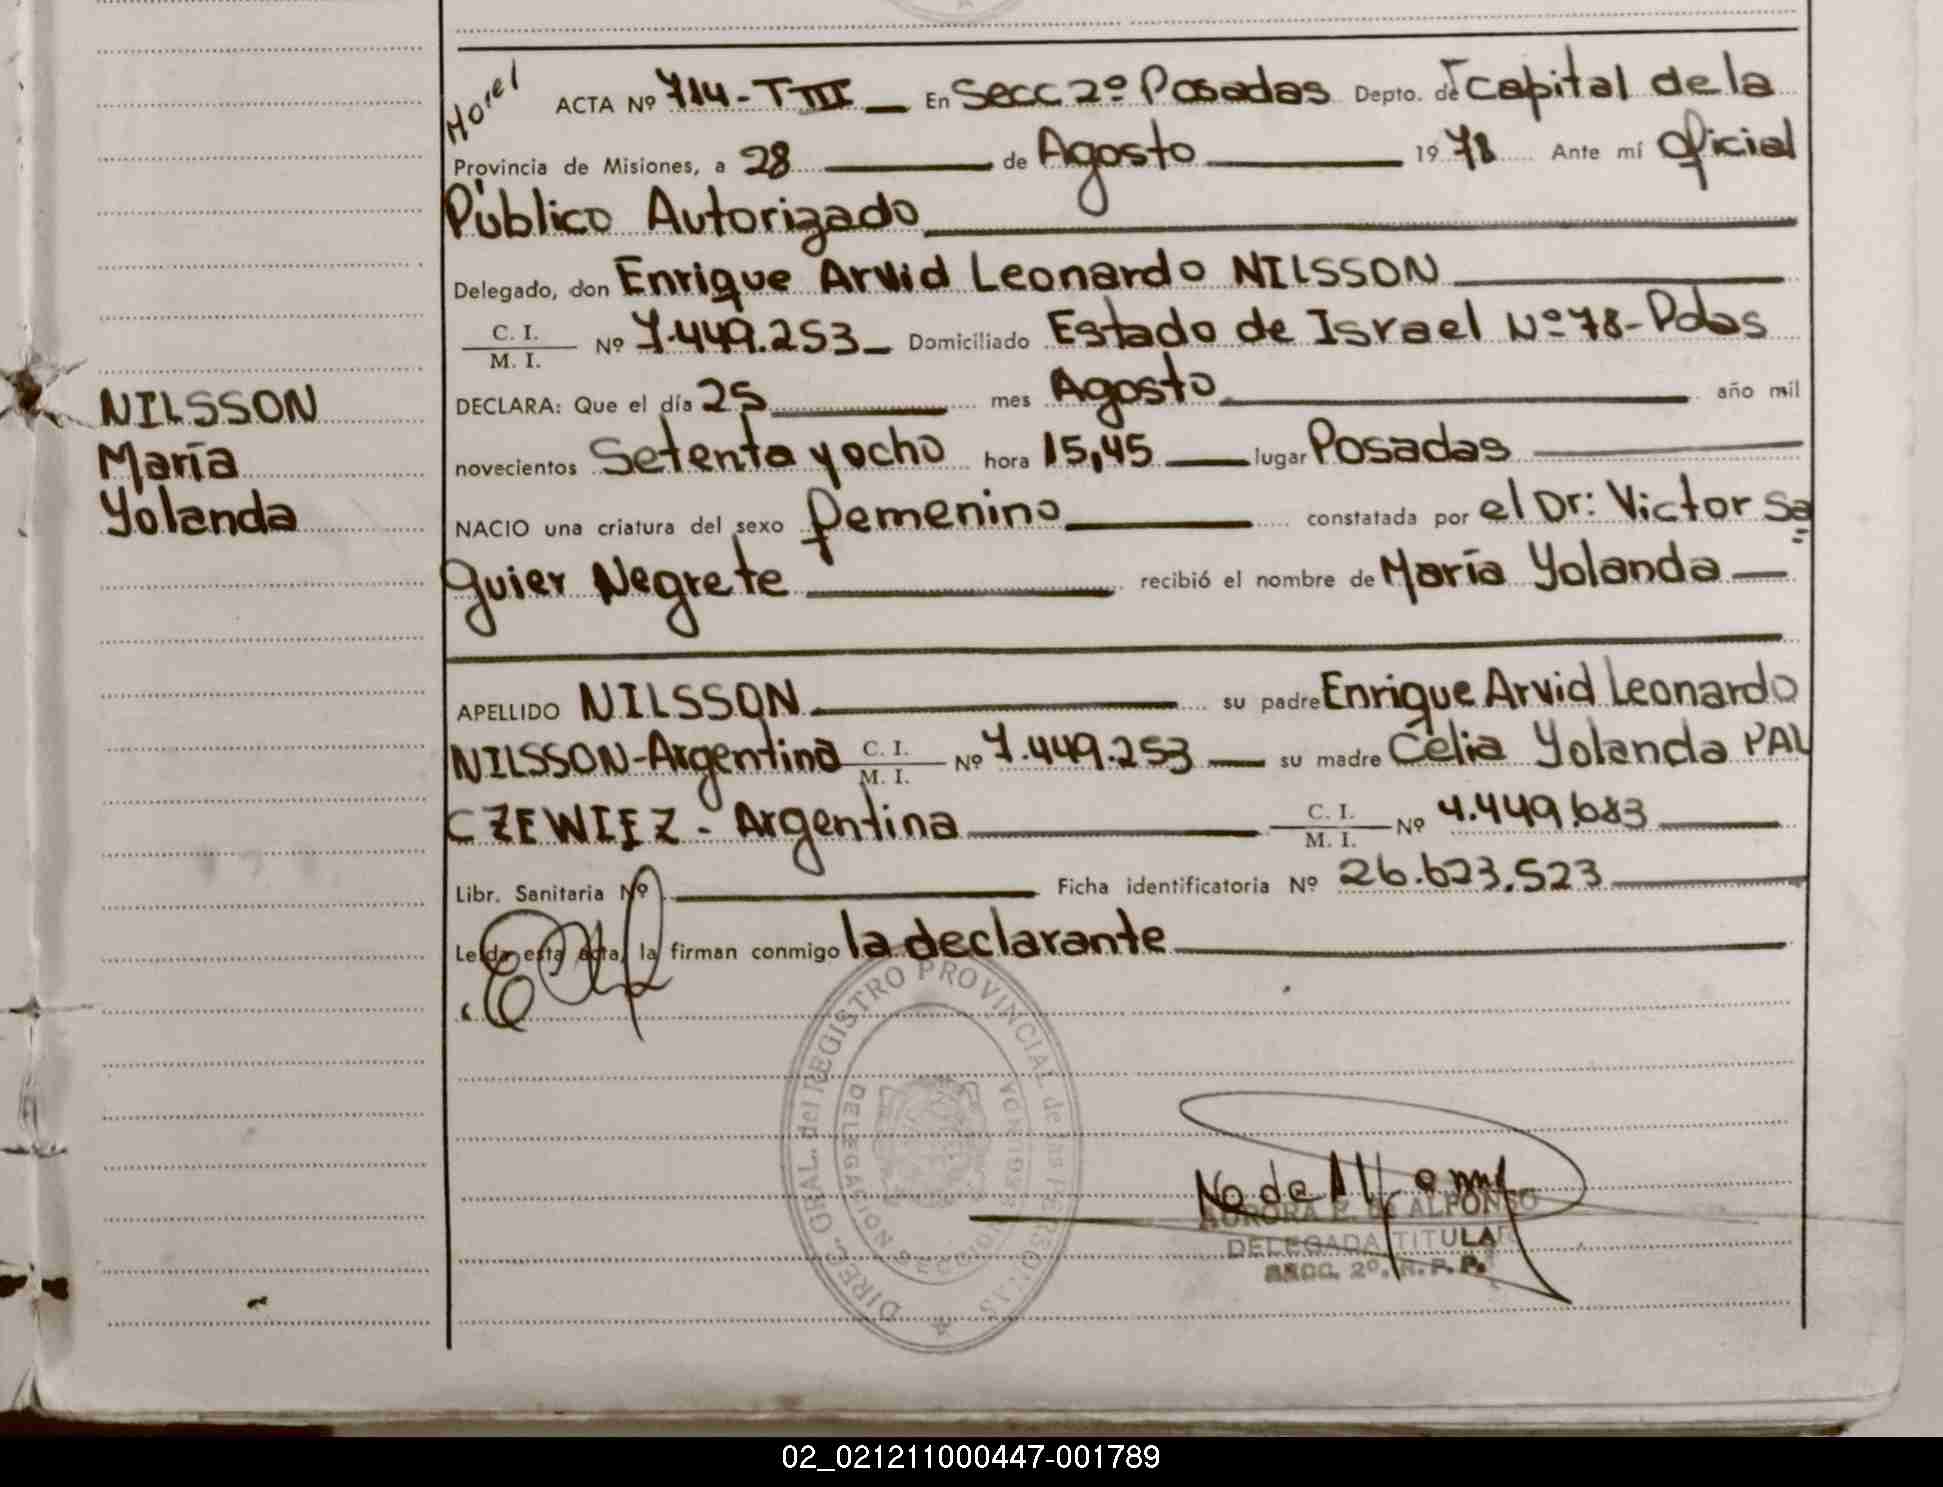 Morel
ACTA Nº 714-TIII En Secc 2º Posadas Depto. de Capital de la
Provincia de Misiones, a 28 de Agosto 1978 Ante mí Oficial
Público Autorizado
Delegado, don Enrique Arvid Leonardo NILSSON
C. I.
M. I. Nº 7.449.253 Domiciliado Estado de Israel Nº 78-Pdas
DECLARA: Que el día 25 mes Agosto año mil
novecientos Setenta y ocho hora 15,45 lugar Posadas
NACIO una criatura del sexo femenino constatada por el Dr: Victor Sa=
guier Negrete recibió el nombre de María Yolanda
NILSSON
María
Yolanda
APELLIDO NILSSON su padre Enrique Arvid Leonardo
NILSSON-Argentina C. I. M. I. Nº 7.449.253 su madre Celia Yolanda PAL
CZEWIEZ - Argentina C. I. M. I. Nº 4.449.683
Libr. Sanitaria Nº Ficha identificatoria Nº 26.623.523
Leída esta acta, la firman conmigo la declarante
DIREC. GRAL. del REGISTRO PROVINCIAL de las PERSONAS
DELEGACION
AURORA E. de ALFONSO
DELEGADA TITULAR
SECC. 2º. R. P. P.
02_021211000447-001789